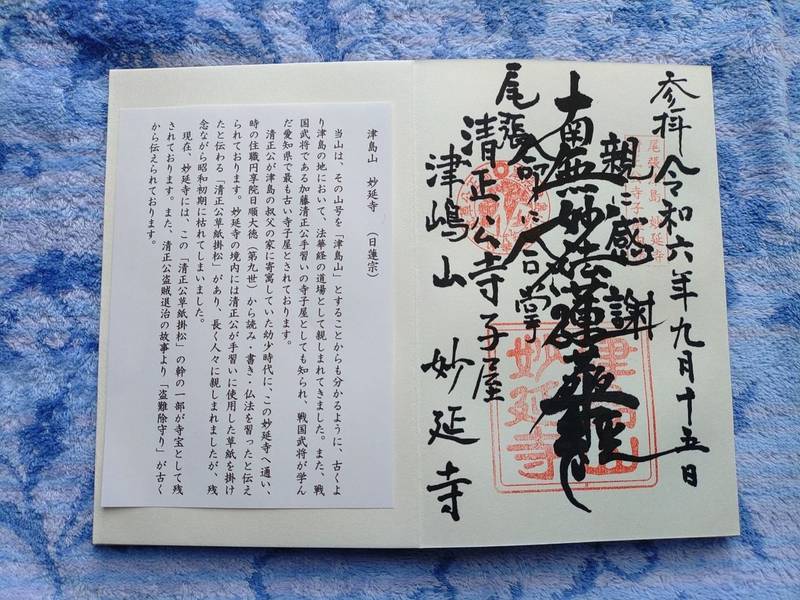 参拝 令和六年九月十五日
親に感謝
南無妙法蓮華経
命に合掌
尾張
清正公寺子屋
津嶋山 妙延寺
津島山
妙延寺
津島山 妙延寺 （日蓮宗）
当山は、その山号を「津島山」とすることからも分かるように、古くよ
り津島の地において、法華経の道場として親しまれてきました。また、戦
国武将である加藤清正公手習いの寺子屋としても知られ、戦国武将が学ん
だ愛知県で最も古い寺子屋とされております。
清正公が津島の叔父の家に寄寓していた幼少時代に、この妙延寺へ通い、
時の住職円享院日順大徳（第九世）から読み・書き・仏法を習ったと伝え
られております。妙延寺の境内には清正公が手習いに使用した草紙を掛け
たと伝わる「清正公草紙掛松」があり、長く人々に親しまれましたが、残
念ながら昭和初期に枯れてしまいました。
現在、妙延寺には、この「清正公草紙掛松」の幹の一部が寺宝として残
されております。また、清正公盗賊退治の故事より「盗難除守り」が古く
から伝えられております。